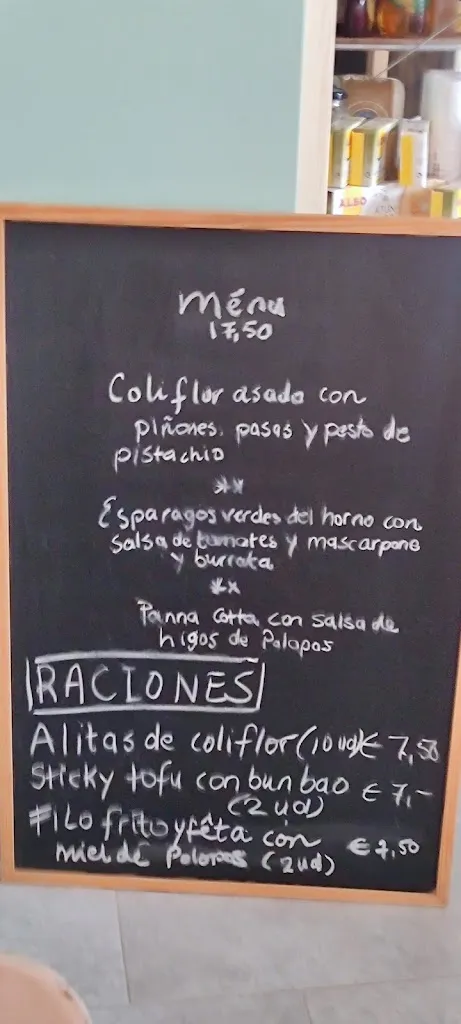 ALBO
ménu
17,50
Coliflor asada con
piñones, pasas y pesto de
pistachio
**
Esparagos verdes del horno con
salsa de tomates y mascarpone
y burrata
**
Panna cotta con salsa de
higos de Polopos
RACIONES
Alitas de coliflor (10 ud) € 7,50
Sticky tofu con bun bao € 7,-
(2 ud)
FILO frito y fêta con € 7,50
miel de Polopos (2 ud)